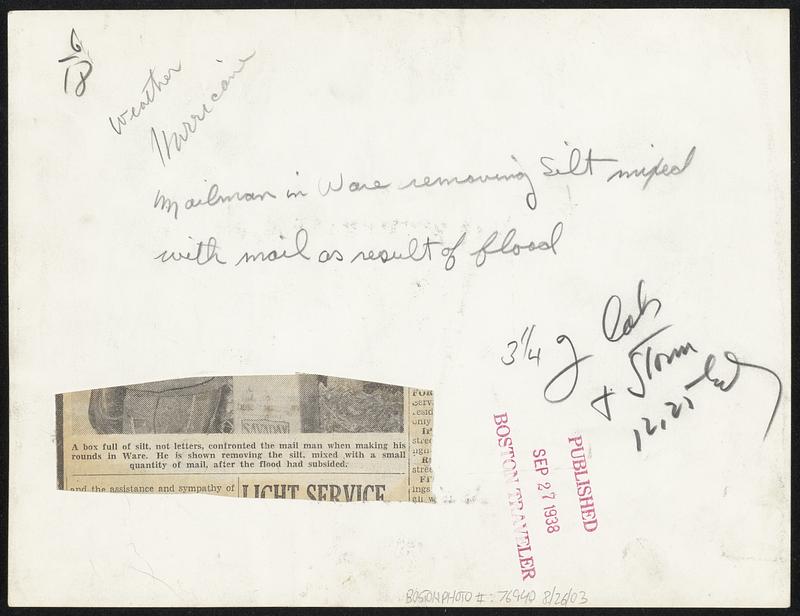 Weather
Hurricane
Mailman in Ware removing Silt mixed
with mail as result of flood
3 1/4 g lab
+ Storm
12,25
A box full of silt, not letters, confronted the mail man when making his
rounds in Ware. He is shown removing the silt, mixed with a small
quantity of mail, after the flood had subsided.
and the assistance and sympathy of
LIGHT SERVICE
PUBLISHED
SEP 27 1938
BOSTON TRAVELER
BOSTON PHOTO #: 76940 8/26/03